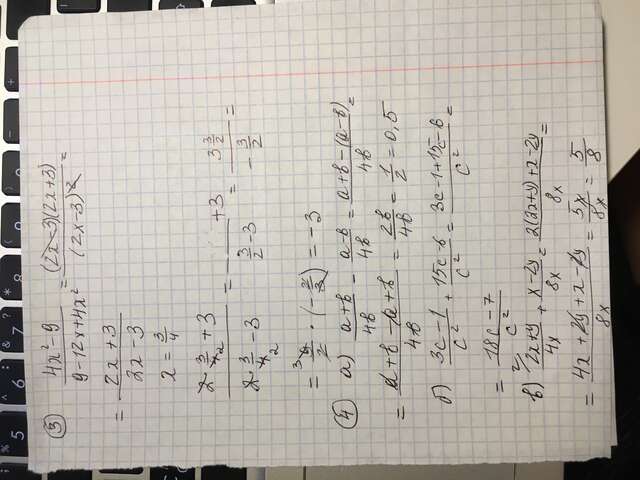 ③ (4x² - 9)/(9 - 12x + 4x²) = ((2x - 3)(2x + 3))/((2x - 3)²) =
= (2x + 3)/(2x - 3)
x = 3/4
(2 · 3/4₂ + 3)/(2 · 3/4₂ - 3) = ( + 3)/(3/2 - 3) = (3 3/2)/(- 3/2) =
= ³9/2 · (- 2/3) = -3
④ а) (a + b)/4b - (a - b)/4b = (a + b - (a - b))/4b =
= (a + b - a + b)/4b = 2b/4b = 1/2 = 0,5
б) (3c - 1)/c² + (15c - 6)/c² = (3c - 1 + 15c - 6)/c² =
= (18c - 7)/c²
в) ²⁄(2x + y)/4x + (x - 2y)/8x = (2(2x + y) + x - 2y)/8x =
= (4x + 2y + x - 2y)/8x = 5x/8x = 5/8